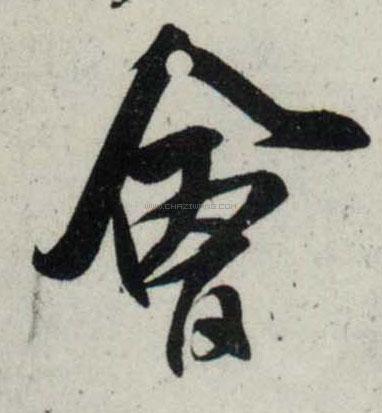 會
WWW.CHAZIWANG.COM